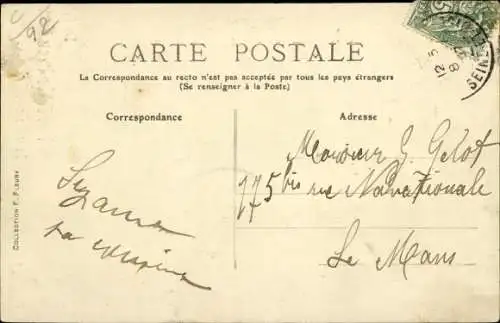 C/92
CARTE POSTALE
La Correspondance au recto n'est pas acceptée par tous les pays étrangers
(Se renseigner à la Poste)
Correspondance
Adresse
Monsieur G. Gelot
175 bis rue Nationale
Le Mans
Suzanne
COLLECTION F. FLEURY
SEINE